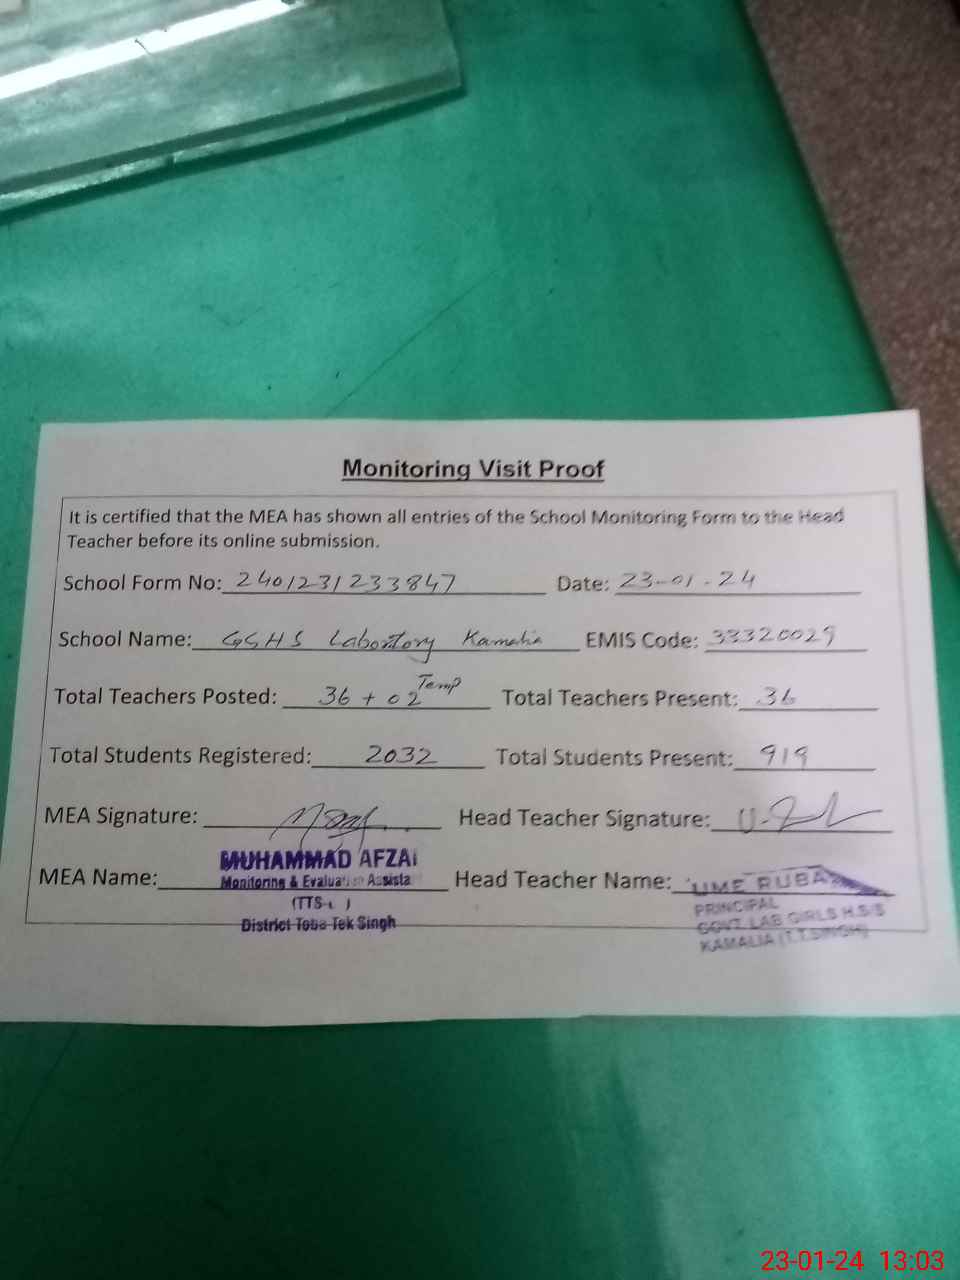 Monitoring Visit Proof
It is certified that the MEA has shown all entries of the School Monitoring Form to the Head
Teacher before its online submission.
School Form No: 2401231233847 Date: 23-01-24
School Name: GGHS Laboratory Kamalia EMIS Code: 33320029
Total Teachers Posted: 36 + 02 Temp Total Teachers Present: 36
Total Students Registered: 2032 Total Students Present: 919
MEA Signature: Head Teacher Signature:
MEA Name: MUHAMMAD AFZAL Head Teacher Name: UME RUBA
Monitoring & Evaluation Assista
District Toba Tek Singh
PRINCIPAL
GOVT. LAB GIRLS H.S/S
KAMALIA (T.T.SINGH)
23-01-24 13:03